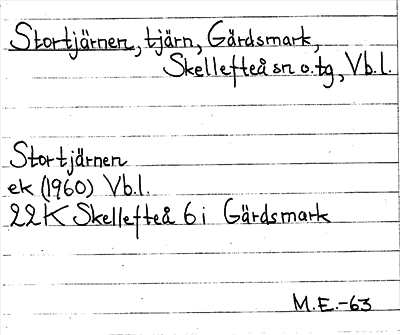 Stortjärnen, tjärn, Gärdsmark,
Skellefteå sn o. tg, Vb.l.
Stortjärnen
ek (1960) Vb.l.
22K Skellefteå 6 i Gärdsmark
M.E.-63